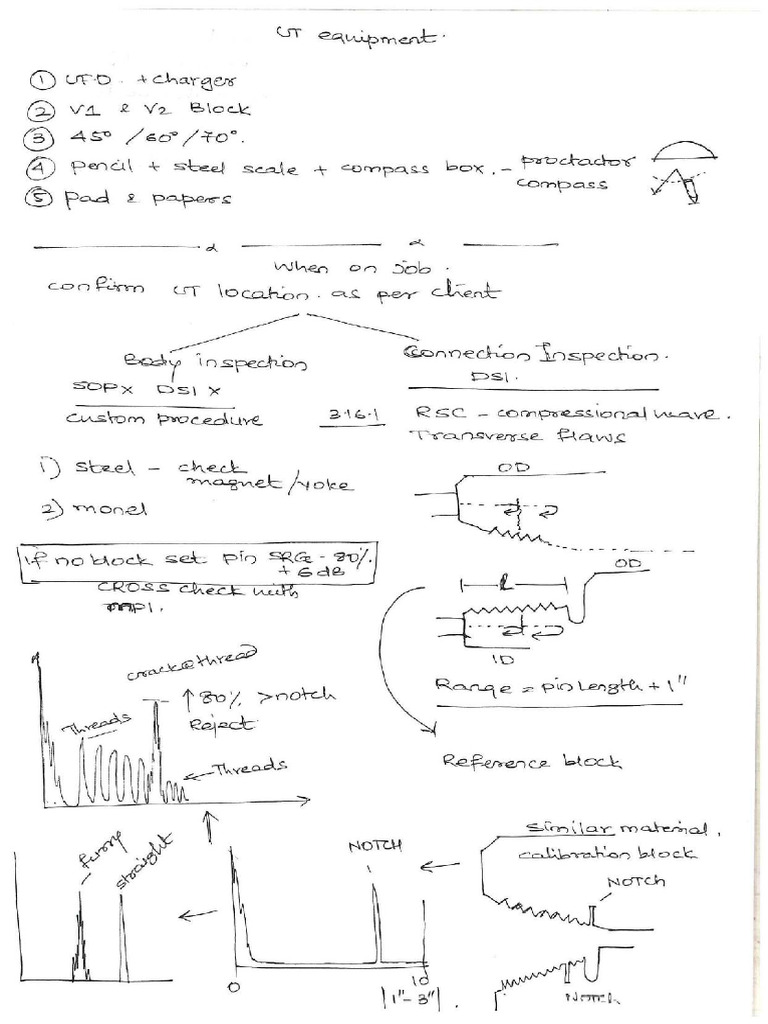 UT equipment.
① UFD. + charger
② V1 & V2 Block
③ 45° / 60° / 70°.
④ pencil + steel scale + compass box. - proctactor
compass
⑤ Pad & papers
When on job.
confirm UT location. as per client
Body inspection
SOP x DS1 x
custom procedure
1) steel - check
magnet/yoke
2) monel
if no block set pin SRG - 80%.
+ 6 dB
CROSS check with
MPI.
Connection Inspection.
DS1.
3.16.1 RSC - compressional wave.
Transverse flaws
OD
OD
l
ID
Range = pin length + 1"
Reference block
crack @ thread
↑ 80% > notch
Reject
Threads
← Threads
similar material.
calibration block
NOTCH
NOTCH
NOTCH
straight
0
10
|1"-3"|.